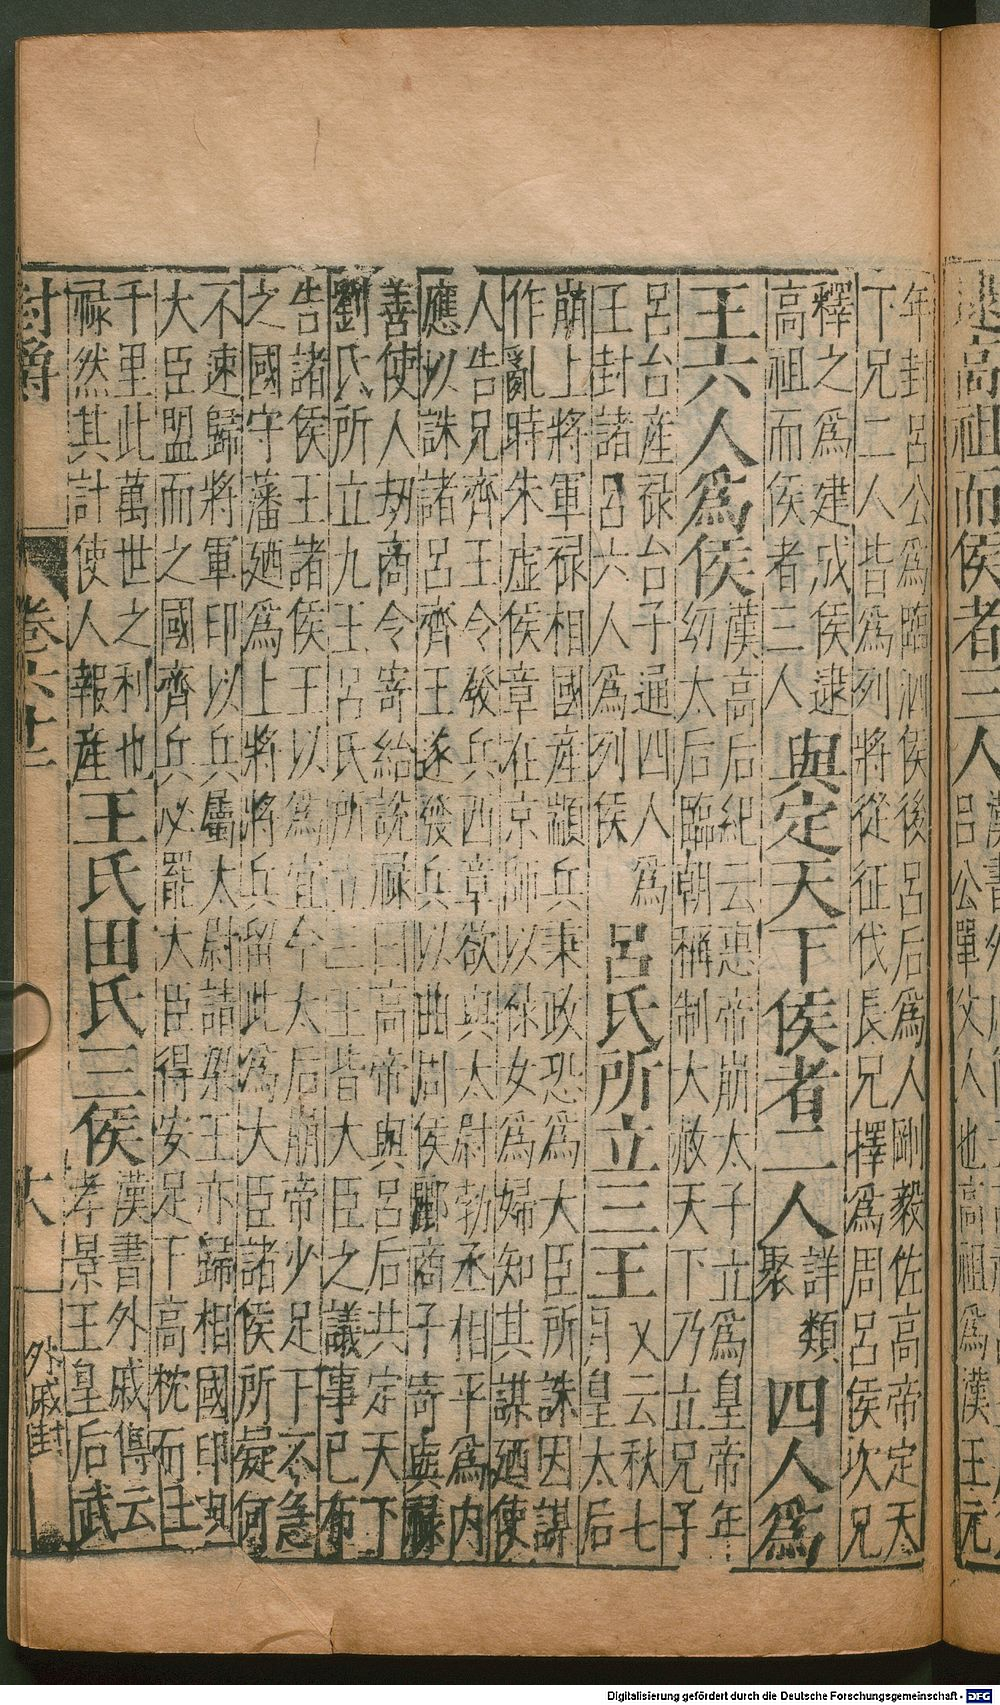 年封呂公為臨泗侯後呂后為人剛毅佐高帝定天
下兄二人皆為列將從征伐長兄擇為周呂侯次兄
釋之為建成侯逮
高祖而侯者三人
與定天下侯者二人
詳類
聚
四人為
王六人為侯
漢高后紀云惠帝崩太子立為皇帝年
幼太后臨朝稱制大赦天下乃立兄子
呂台產祿台子通四人為
王封諸呂六人為列侯
呂氏所立三王
又云秋七
月皇太后
崩上將軍祿相國產顓兵秉政恐為大臣所誅因謀
作亂時朱虛侯章在京師以祿女為婦知其謀廼使
人告兄齊王令發兵西章欲與太尉勃丞相平為內
應以誅諸呂齊王遂發兵以曲周侯酈商子寄與祿
善使人劫商令寄紿說祿曰高帝與呂后共定天下
劉氏所立九王呂氏所立三王皆大臣之議事已布
告諸侯王諸侯王以為宜今太后崩帝少足下不急
之國守藩廼為上將將兵留此為大臣諸侯所疑何
不速歸將軍印以兵屬太尉請梁王亦歸相國印與
大臣盟而之國齊兵必罷大臣得安足下高枕而王
千里此萬世之利也
祿然其計使人報產
王氏田氏三侯
漢書外戚傳云
孝景王皇后武
封爵
卷六十
六一
外戚封
逮高祖而侯者三人
呂公單父人也高祖為漢王元
Digitalisierung gefördert durch die Deutsche Forschungsgemeinschaft - DFG